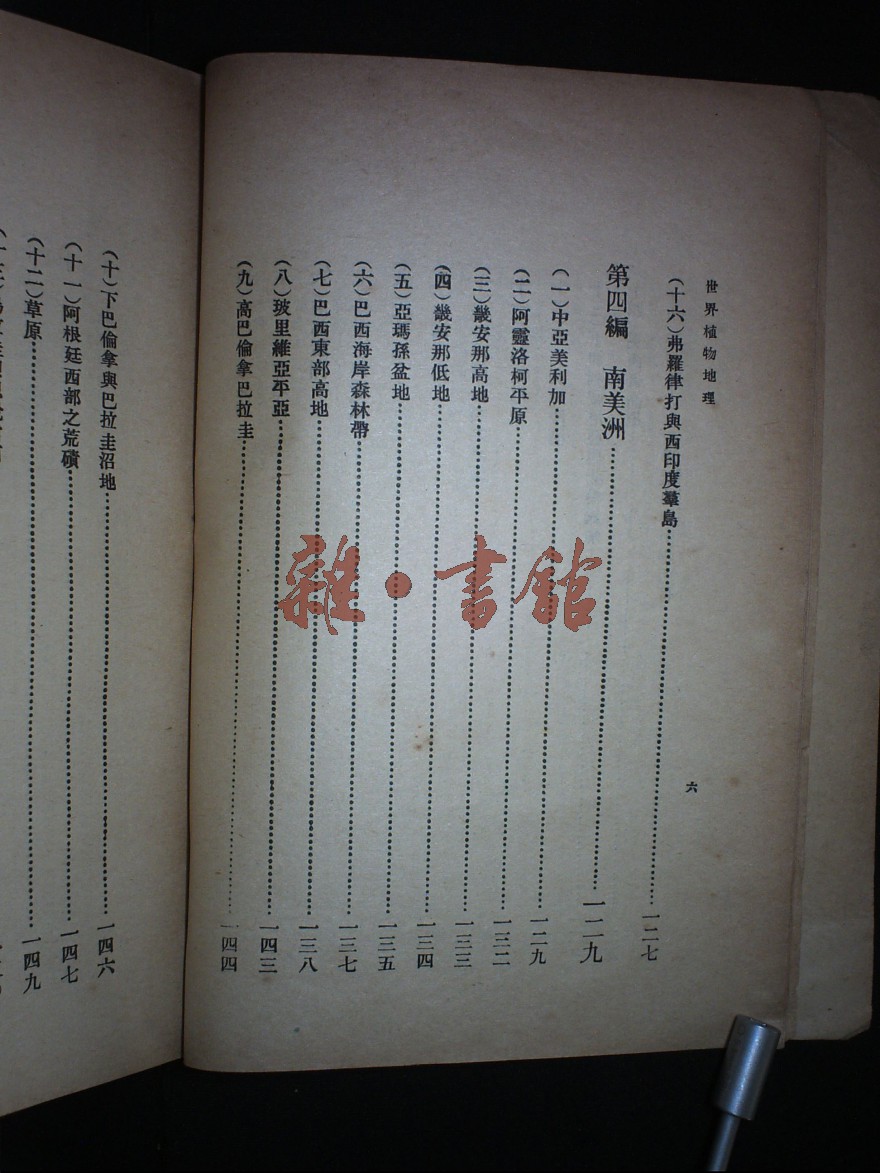 世界植物地理
六
(十六)弗羅律打與西印度羣島……一二七
第四編 南美洲……一二九
(一)中亞美利加……一二九
(二)阿靈洛柯平原……一三二
(三)畿安那高地……一三三
(四)畿安那低地……一三四
(五)亞瑪孫盆地……一三五
(六)巴西海岸森林帶……一三七
(七)巴西東部高地……一三八
(八)玻里維亞平亞……一四三
(九)高巴倫拿巴拉圭……一四四
(十)下巴倫拿與巴拉圭沼地……一四六
(十一)阿根廷西部之荒磧……一四七
(十二)草原……一四九
雜·書館